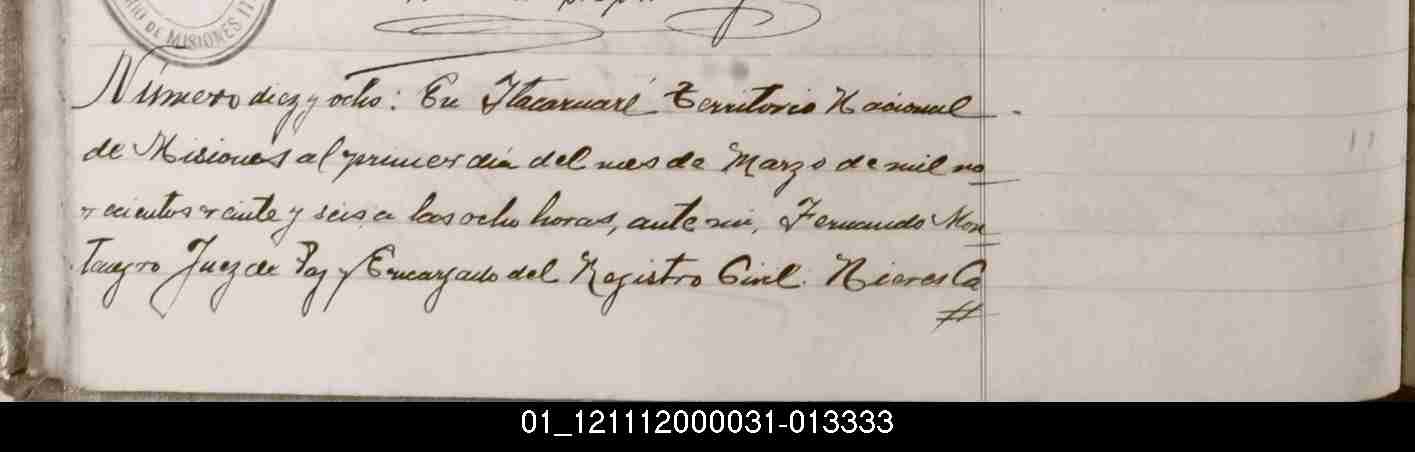 RIO DE MISIONES IT
Número diez y ocho: En Itacaruaré Territorio Nacional
de Misiones al primer dia del mes de Marzo de mil no
vecientos veinte y seis, a las ocho horas, ante mi, Fernando Mon
tagro Juez de Paz y Encargado del Registro Civil. Nieves Ca
#
01_121112000031-013333